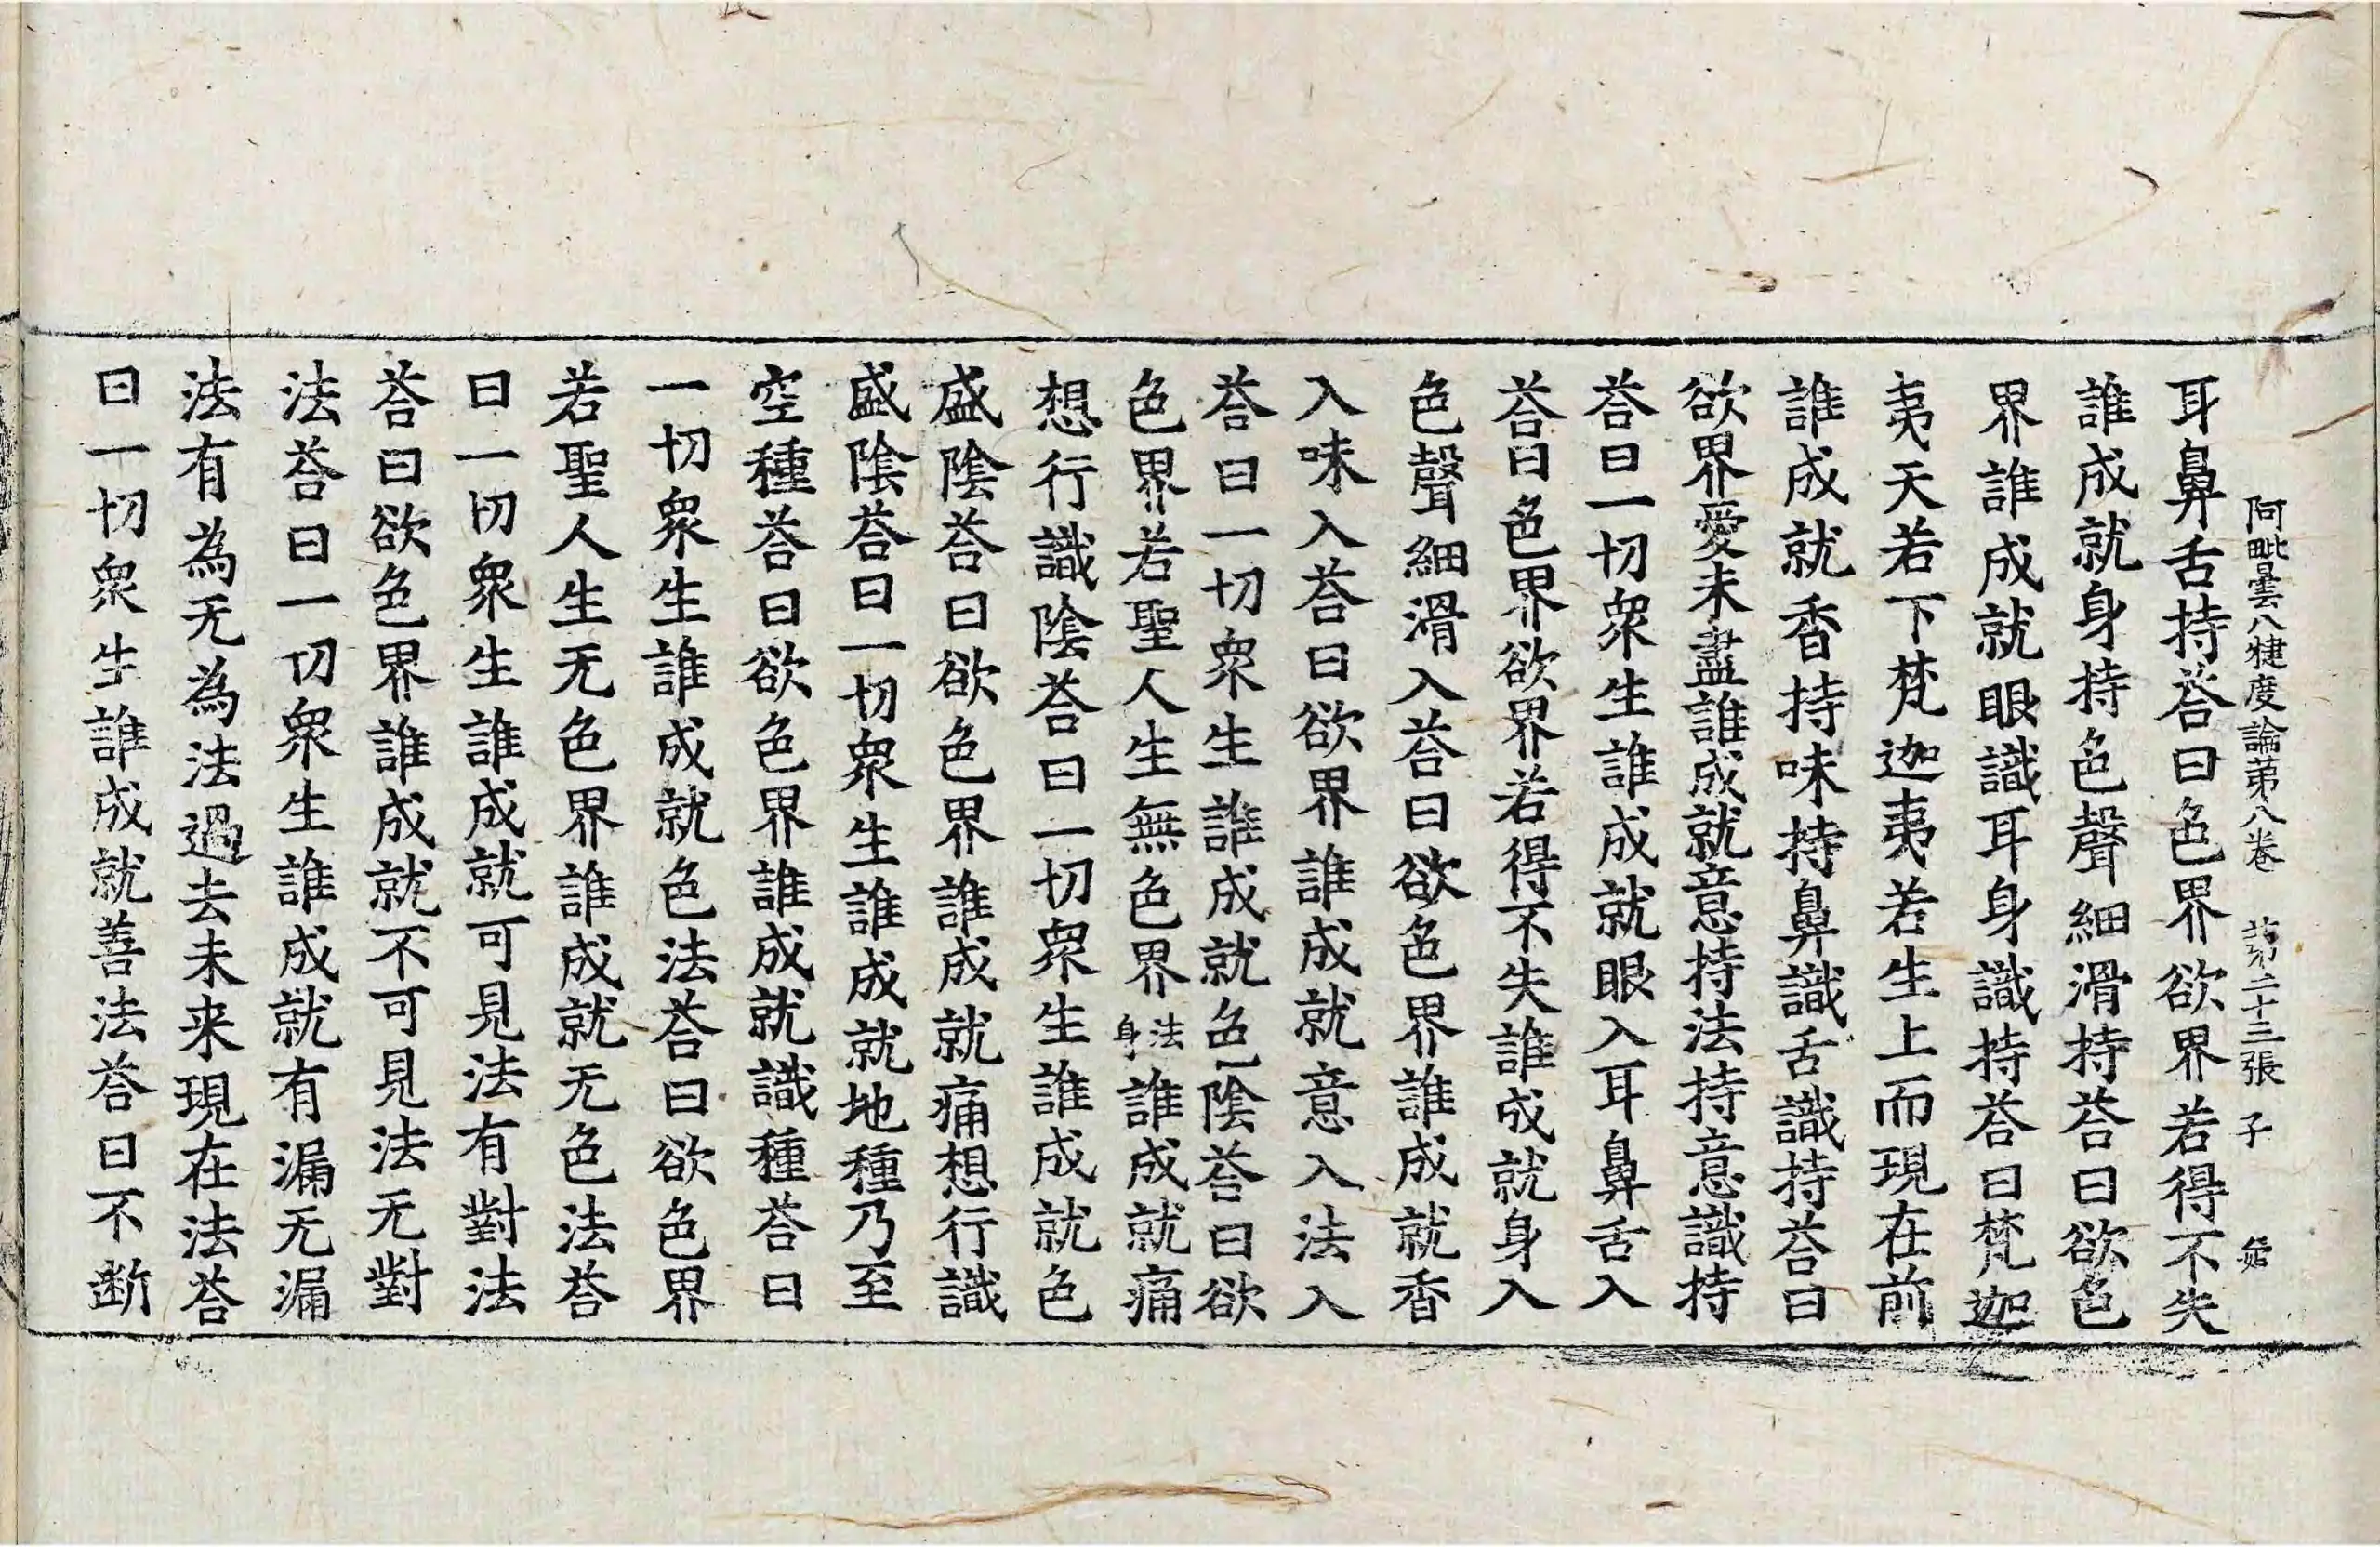 阿毗曇八犍度論苐八卷　苐二十三張　子
耳鼻舌持荅曰色界欲界若得不失
誰成就身持色聲細滑持荅曰欲色
界誰成就眼識耳身識持荅曰梵迦
夷天若下梵迦夷若生上而現在前
誰成就香持味持鼻識舌識持荅曰
欲界愛未盡誰成就意持法持意識持
荅曰一切衆生誰成就眼入耳鼻舌入
荅曰色界欲界若得不失誰成就身入
色聲細滑入荅曰欲色界誰成就香
入味入荅曰欲界誰成就意入法入
荅曰一切衆生誰成就色陰荅曰欲
色界若聖人生無色界法身誰成就痛
想行識陰荅曰一切衆生誰成就色
盛陰荅曰欲色界誰成就痛想行識
盛陰荅曰一切衆生誰成就地種乃至
空種荅曰欲色界誰成就識種荅曰
一切衆生誰成就色法荅曰欲色界
若聖人生无色界誰成就无色法荅
曰一切衆生誰成就可見法有對法
荅曰欲色界誰成就不可見法无對
法荅曰一切衆生誰成就有漏无漏
法有為无為法過去未来現在法荅
曰一切衆生誰成就善法荅曰不断